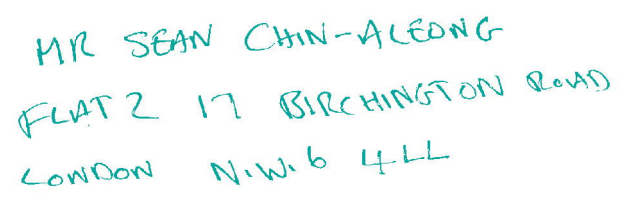 MR SEAN CHIN-ALEONG
FLAT 2 17 BIRCHINGTON ROAD
LONDON N.W.6 4LL